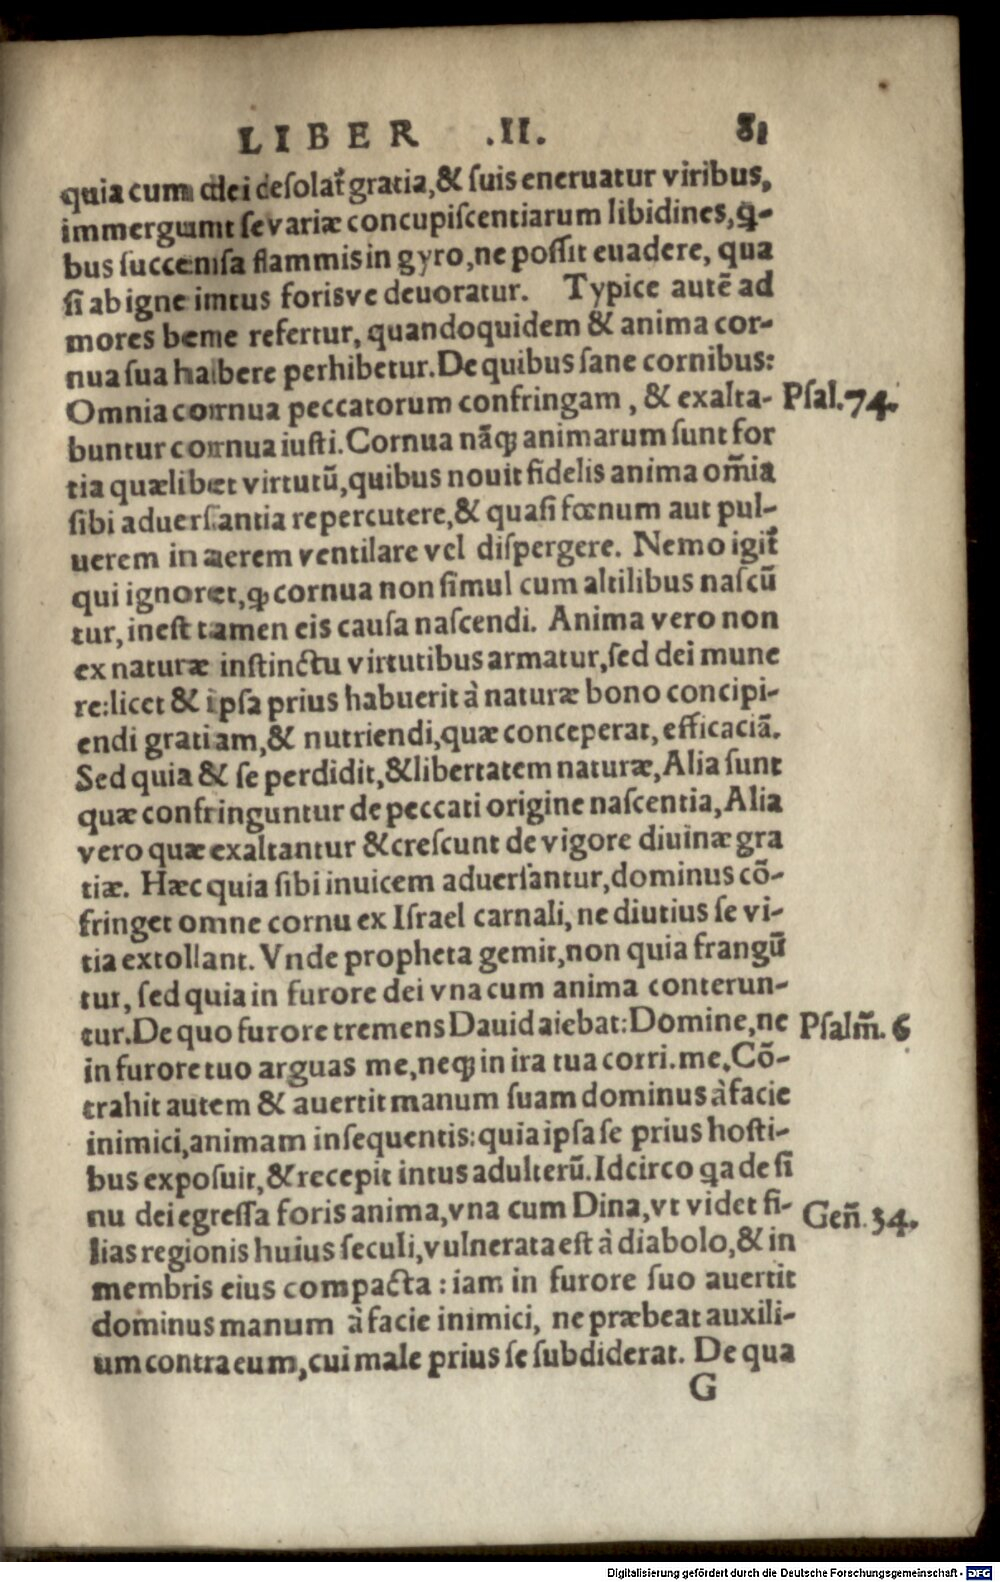 LIBER .II. 81
quia cum dei desolat᷑ gratia, & suis eneruatur viribus,
immergunt se variæ concupiscentiarum libidines, q̃-
bus succensa flammis in gyro, ne possit euadere, qua
si ab igne intus forisve deuoratur. Typice autẽ ad
mores bene refertur, quandoquidem & anima cor-
nua sua habere perhibetur. De quibus sane cornibus:
Omnia cornua peccatorum confringam, & exalta- Psal. 74.
buntur cornua iusti. Cornua nãq; animarum sunt for
tia quælibet virtutũ, quibus nouit fidelis anima om̃ia
sibi aduersantia repercutere, & quasi fœnum aut pul-
uerem in aerem ventilare vel dispergere. Nemo igit᷑
qui ignoret, ꝙ cornua non simul cum altilibus nascũ
tur, inest tamen eis causa nascendi. Anima vero non
ex naturæ instinctu virtutibus armatur, sed dei mune
re: licet & ipsa prius habuerit à naturæ bono concipi-
endi gratiam, & nutriendi, quæ conceperat, efficaciã.
Sed quia & se perdidit, & libertatem naturæ, Alia sunt
quæ confringuntur de peccati origine nascentia, Alia
vero quæ exaltantur & crescunt de vigore diuinæ gra
tiæ. Hæc quia sibi inuicem aduersantur, dominus cõ-
fringet omne cornu ex Israel carnali, ne diutius se vi-
tia extollant. Vnde propheta gemit, non quia frangũ
tur, sed quia in furore dei vna cum anima conterun-
tur. De quo furore tremens Dauid aiebat: Domine, ne Psalm̃. 6
in furore tuo arguas me, neq; in ira tua corri. me. Cõ-
trahit autem & auertit manum suam dominus à facie
inimici, animam insequentis: quia ipsa se prius hosti-
bus exposuit, & recepit intus adulterũ. Idcirco q̃a de si
nu dei egressa foris anima, vna cum Dina, vt videt fi- Geñ. 34.
lias regionis huius seculi, vulnerata est à diabolo, & in
membris eius compacta: iam in furore suo auertit
dominus manum à facie inimici, ne præbeat auxili-
um contra eum, cui male prius se subdiderat. De qua
G
Digitalisierung gefördert durch die Deutsche Forschungsgemeinschaft - DFG